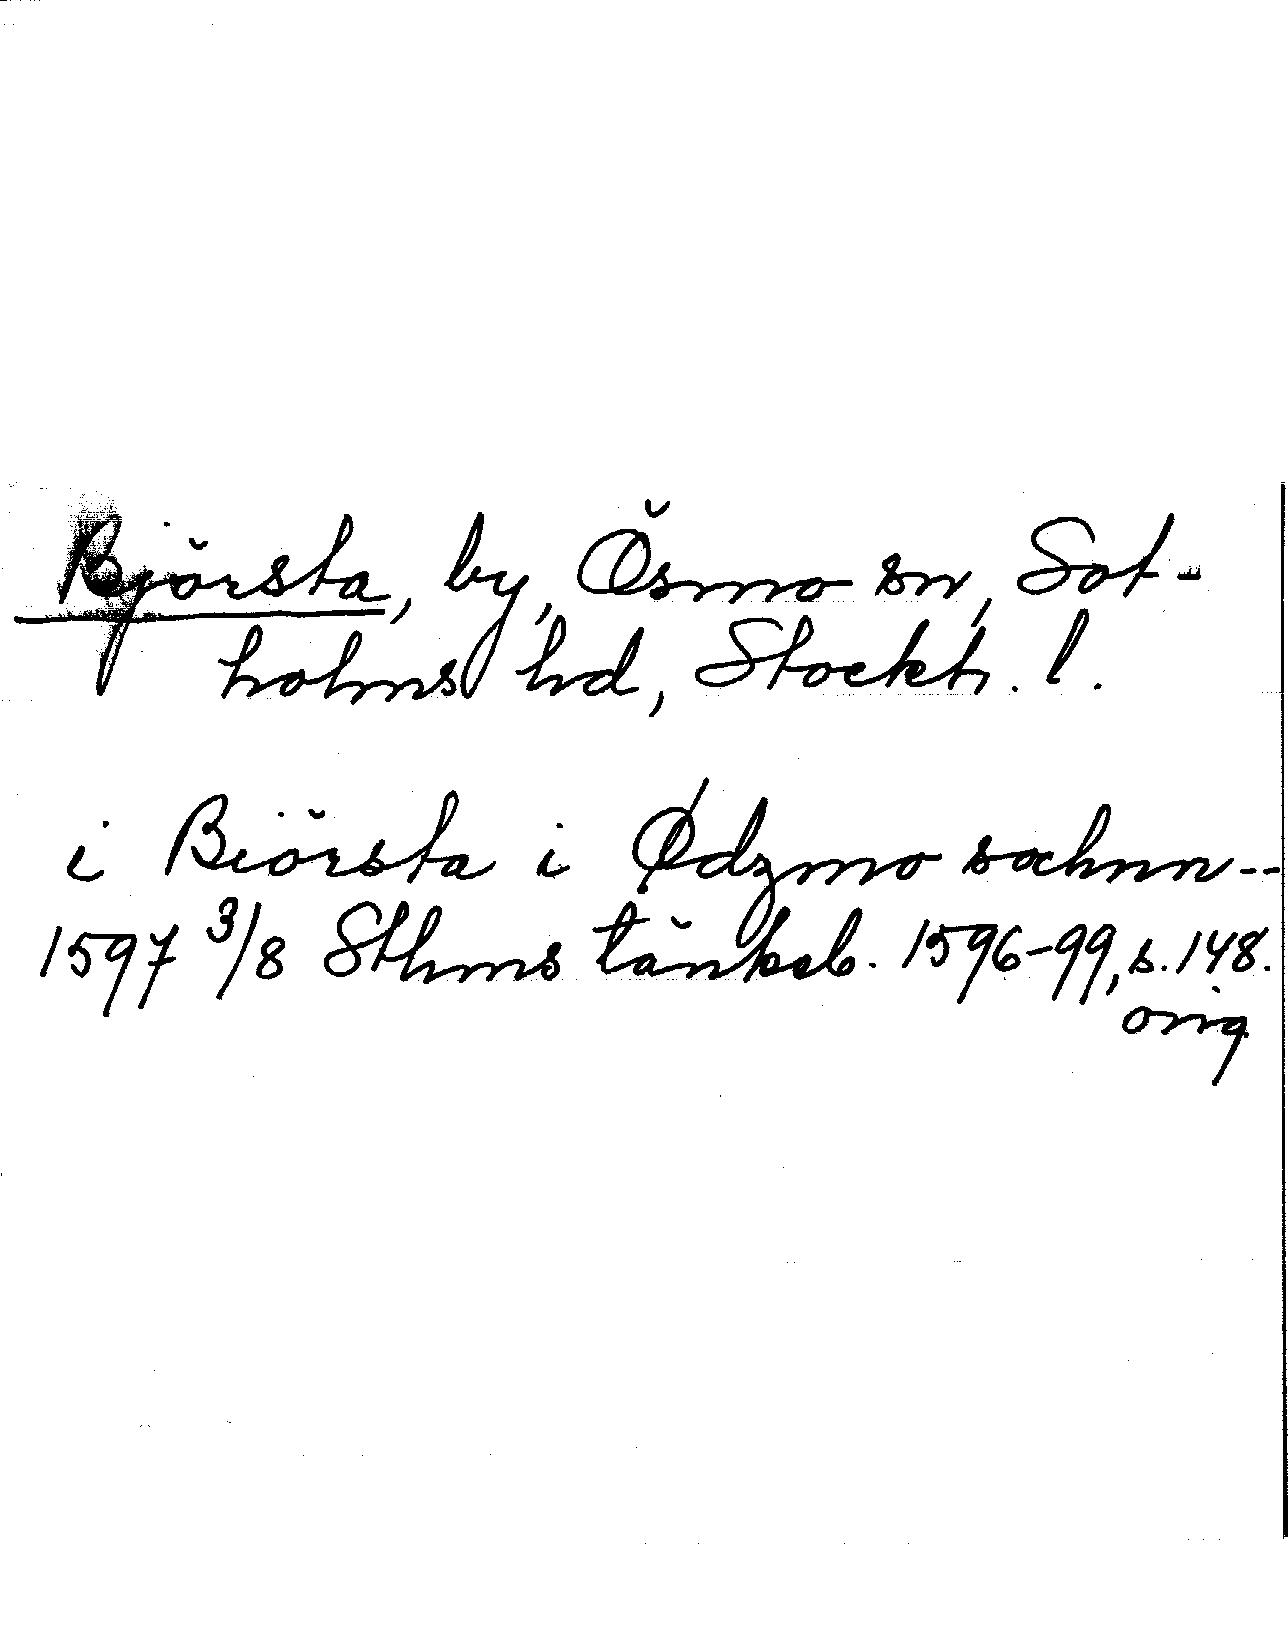 Björsta, by, Ösmo sn, Sot-
holms hd, Stockh. l.
i Biörsta i Ødzmo sochnn--
1597 3/8 Sthms tänkeb. 1596-99, s. 148.
orig